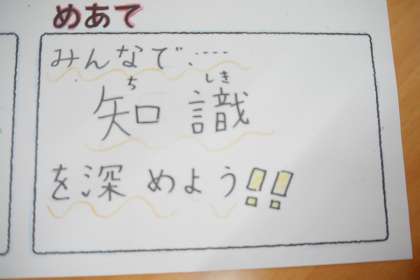 めあて
みんなで‥‥
ち しき
知 識
を深めよう!!